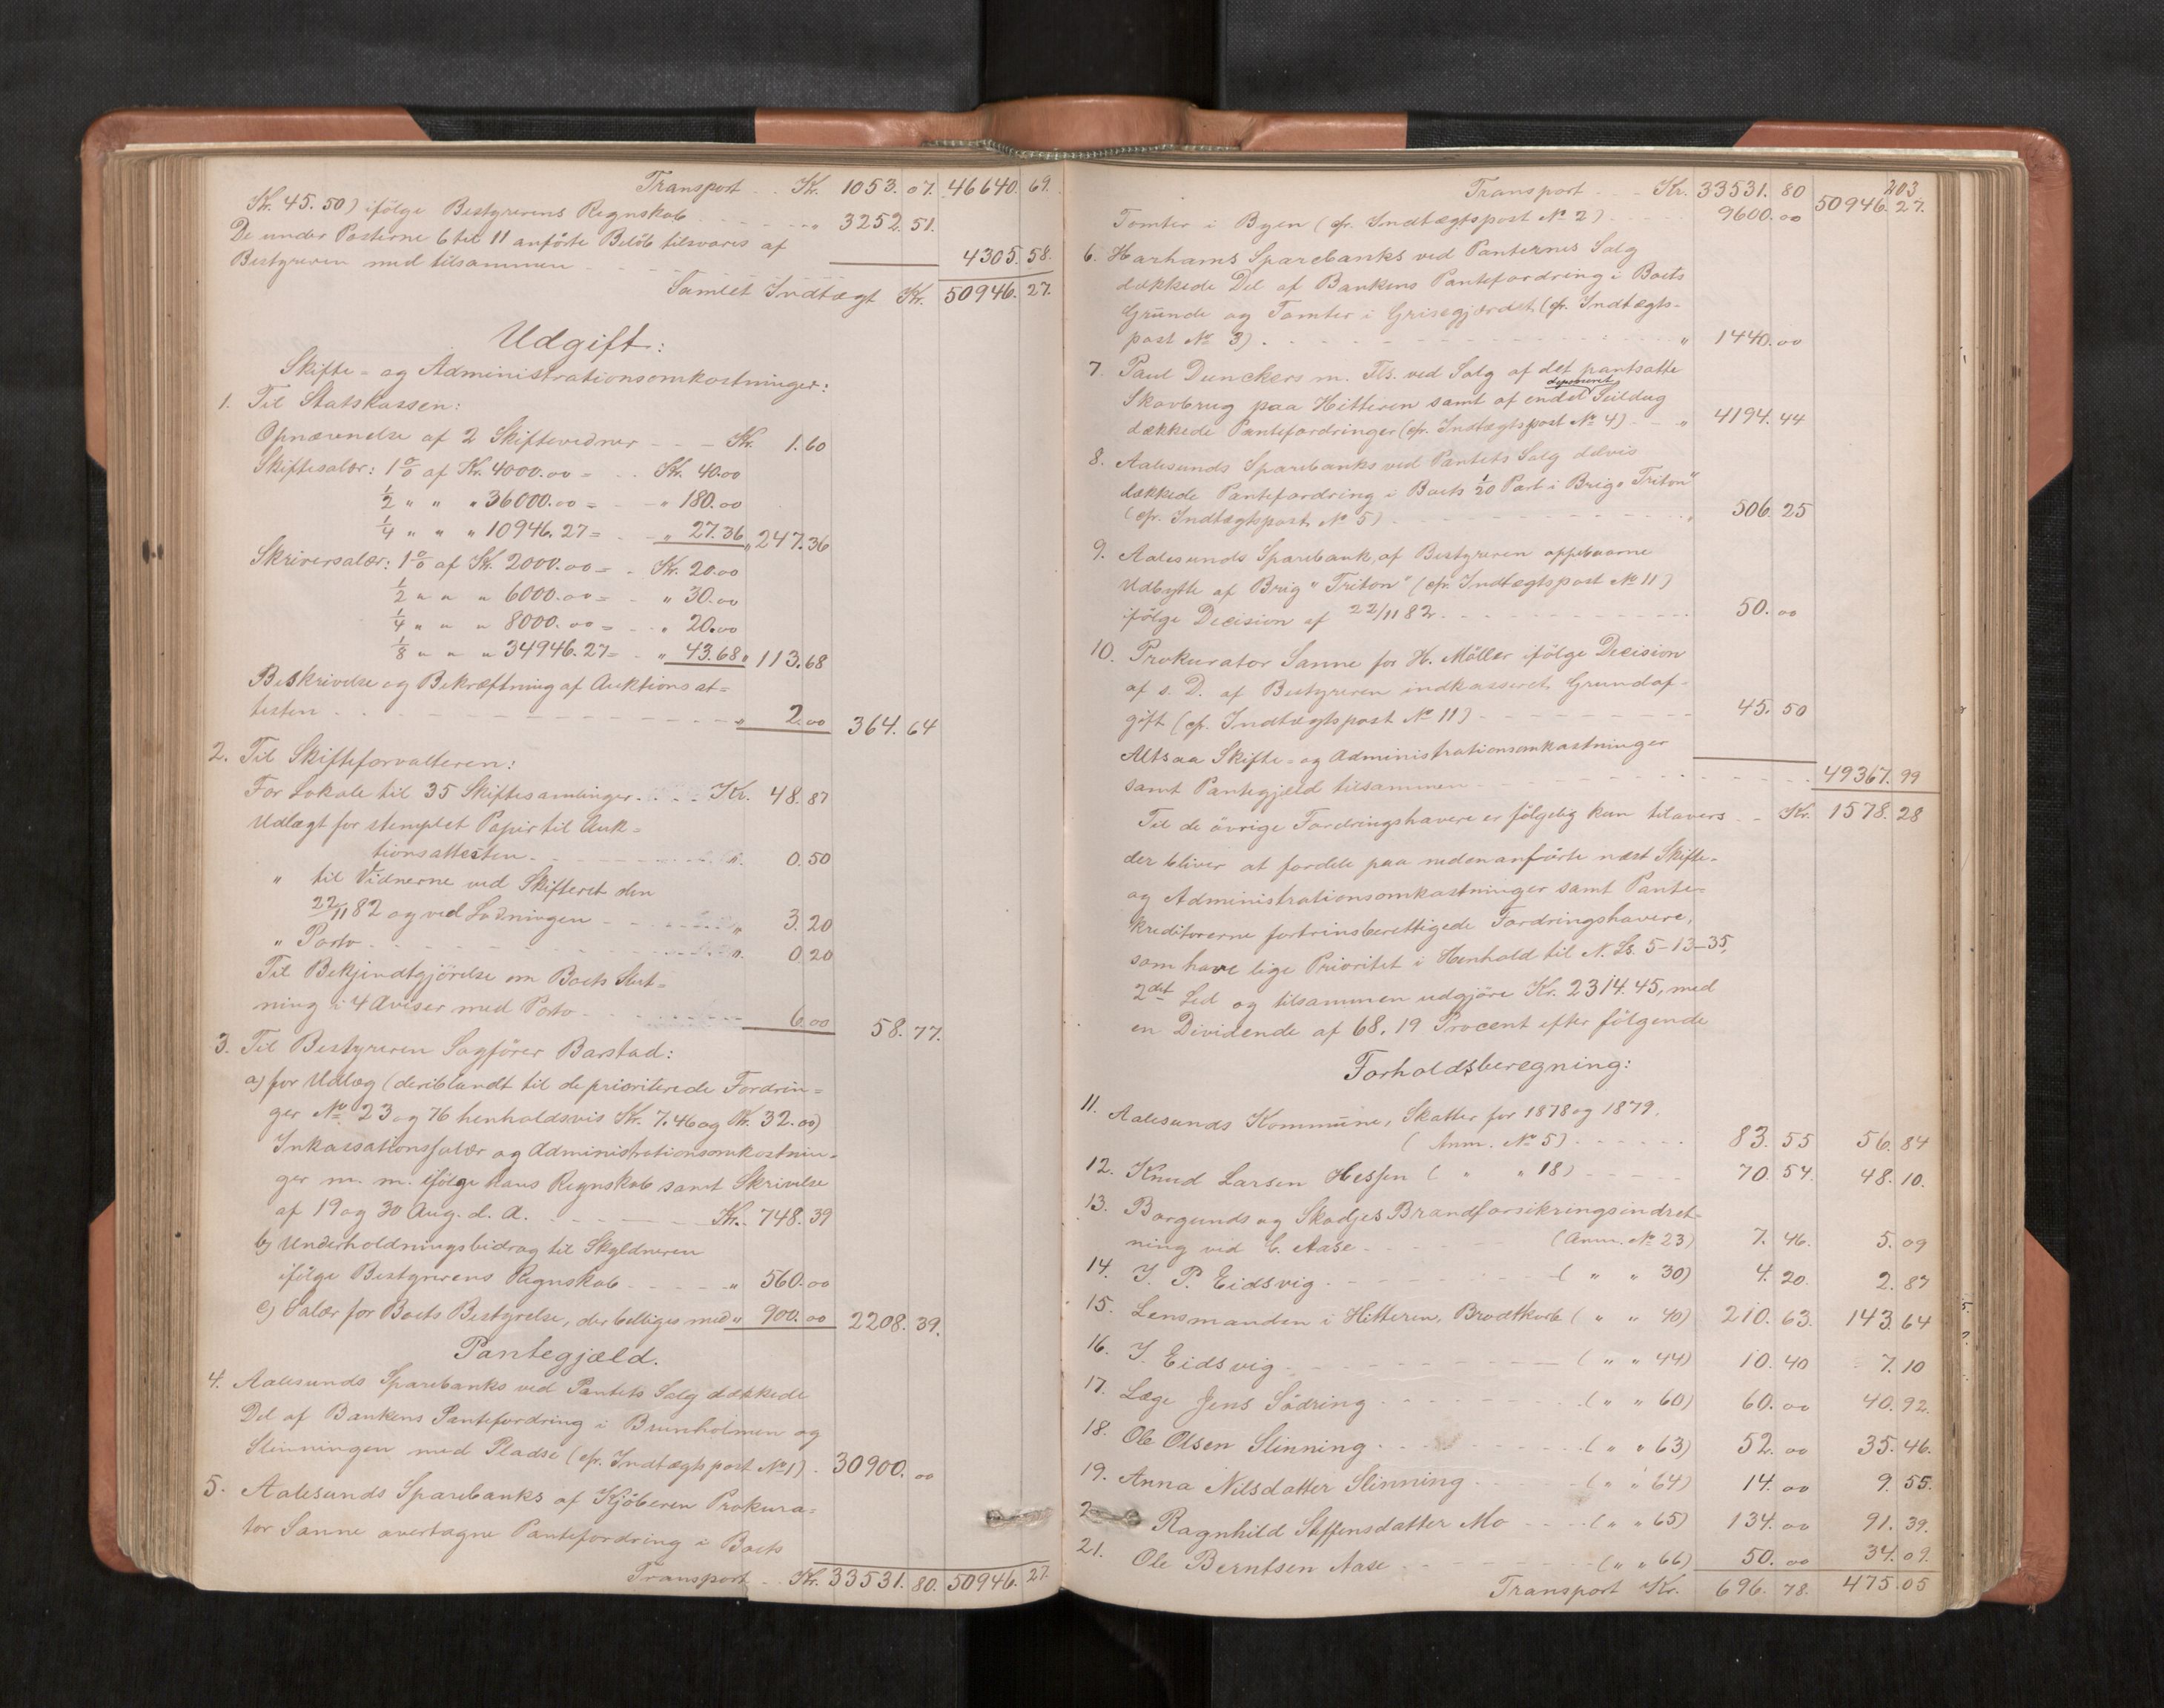 Transport . . Kr. 1053. 07. 46640. 69.
Kr. 45.50) ifölge Bestyrerens Regnskab . . . „ 3252. 51.
De under Posterne 6 til 11 anförte Belöb tilsvares af
Bestyreren med tilsammen . . . 4305. 58.
Samlet Indtægt Kr. 50946. 27.
Udgift:
Skifte- og Administrationsomkostninger:
1. Til Statskassen:
Opnævnelse af 2 Skiftevidner - - - Kr. 1.60
Skiftesalær: 1 % af Kr. 4000.00 = . . Kr. 40.00
1/2 „ „ „ 36000.00 = . - „ 180.00
1/4 „ „ „ 10946.27 = . - „ 27.36 „ 247.36
Skriversalær: 1 % af Kr. 2000.00 = . Kr. 20.00
1/2 „ „ „ 6000.00 = . „ 30.00
1/4 „ „ „ 8000.00 = . . „ 20.00
1/8 „ „ „ 34946.27 = . „ 43.68 „ 113.68
Beskrivelse og Bekræftning af Auktionsat=
testen . . . „ 2.00 364. 64
2. Til Skifteforvalteren:
For Lokale til 35 Skiftesamlinger . . . Kr. 48.87
Udlagt for stemplet Papir til Auk=
tionsattesten . . . „ 0.50
„ til Vidnerne ved Skifteret den
22/11 82 og ved Lodningen . . . „ 3.20
„ Porto . . . „ 0.20
Til Bekjendtgjörelse om Boets Slut=
ning i 4 Aviser med Porto . . . 6.00 58. 77.
3. Til Bestyreren Sagförer Barstad:
a) for Udlæg (deriblandt til de prioriterede Fordrin=
ger No 23 og 76 henholdsvis Kr. 7.46 og Kr. 32.00)
Inkassationssalær og Administrationsomkostnin=
ger m. m. ifölge hans Regnskab samt Skrivelse
af 19 og 30 Aug. d. A. . . . Kr. 748.39
b) Underholdningsbidrag til Skyldneren
ifölge Bestyrerens Regnskab . . . „ 560.00
c) Salær for Boets Bestyrelse, der billiges med „ 900.00 2208. 39.
Pantegjæld.
4. Aalesunds Sparebanks ved Pantets Salg dækkede
Del af Bankens Pantefordring i Brunholmen og
Slinningen med Pladse (cfr. Indtægtspost No 1) . 30900. 00
5. Aalesunds Sparebanks af Kjöberen Prokura=
tor Sanne overtagne Pantefordring i Boets
Transport . . Kr. 33531. 80. 50946. 27.
203
Transport . . . Kr. 33531. 80 50946. 27.
Tomter i Byen (cfr. Indtægtspost No 2) . . . 9600. 00
6. Harhams Sparebanks ved Panternes Salg
dækkede Del af Bankens Pantefordring i Boets
Grunde og Tomter i Grisegjerdet (cfr. Indtægts-
post No 3) . . . „ 1440. 00
7. Paul Dunckers m. Fls. ved Salg af det pantsatte
deponeret
Skovbrug paa Hitteren samt af endel Seildug
dækkede Pantefordringer (cfr. Indtægtspost No 4) . . „ 4194. 44
8. Aalesunds Sparebanks ved Pantets Salg delvis
dækkede Pantefordring i Boets 1/20 Part i Brig „Triton“
(cfr. Indtægtspost No 5) . . . „ 506. 25
9. Aalesunds Sparebank, af Bestyreren oppebaarne
Udbytte af Brig „Triton“ (cfr. Indtægtspost No 11)
ifölge Decision af 22/11 82 . . . 50. 00
10. Prokurator Sanne for H. Möller ifölge Decision
af s. D. af Bestyreren indkasseret Grundaf-
gift (cfr. Indtægtspost No 11) . . . 45. 50
Altsaa Skifte- og Administrationsomkostninger
samt Pantegjæld tilsammen . . . 49367. 99
Til de övrige Fordringshavere er fölgelig kun tilovers . . Kr. 1578. 28
der bliver at fordele paa nedenanförte næst Skifte-
og Administrationsomkostninger samt Pante=
kreditorerne fortrinsberettigede Fordringshavere,
som have lige Prioritet i Henhold til N. Ls. 5-13-35,
2det Led og tilsammen udgjöre Kr. 2314.45, med
en Dividende af 68,19 Procent efter fölgende
Forholdsberegning:
11. Aalesunds Kommune, Skatter for 1878 og 1879.
(Anm. No 5) . . . 83. 55 56. 84
12. Knud Larsen Hessen ( „ „ 18) . . . 70. 54. 48. 10.
13. Borgunds og Skodjes Brandforsikringsindret-
ning ved C. Aase . . . (Anm. No 23) 7. 46. 5. 09
14. I. P. Eidsvig . . . ( „ „ 30) 4. 20. 2. 87
15. Lensmanden i Hitteren, Brodtkorb ( „ „ 40) 210. 63. 143. 64
16. I. Eidsvig . . . ( „ „ 44) 10. 40 7. 10
17. Læge Jens Södring . . . ( „ „ 60) 60. 00 40. 92.
18. Ole Olsen Slinning . . . ( „ „ 63) 52. 00 35. 46.
19. Anna Nilsdatter Slinning . . . ( „ „ 64) 14. 00 9. 55.
2 Ragnhild Steffensdatter Mo . . . ( „ „ 65) 134. 00 91. 39.
21. Ole Berntsen Aase . . . ( „ „ 66) 50. 00 34. 09.
Transport Kr. 696. 78. 475. 05